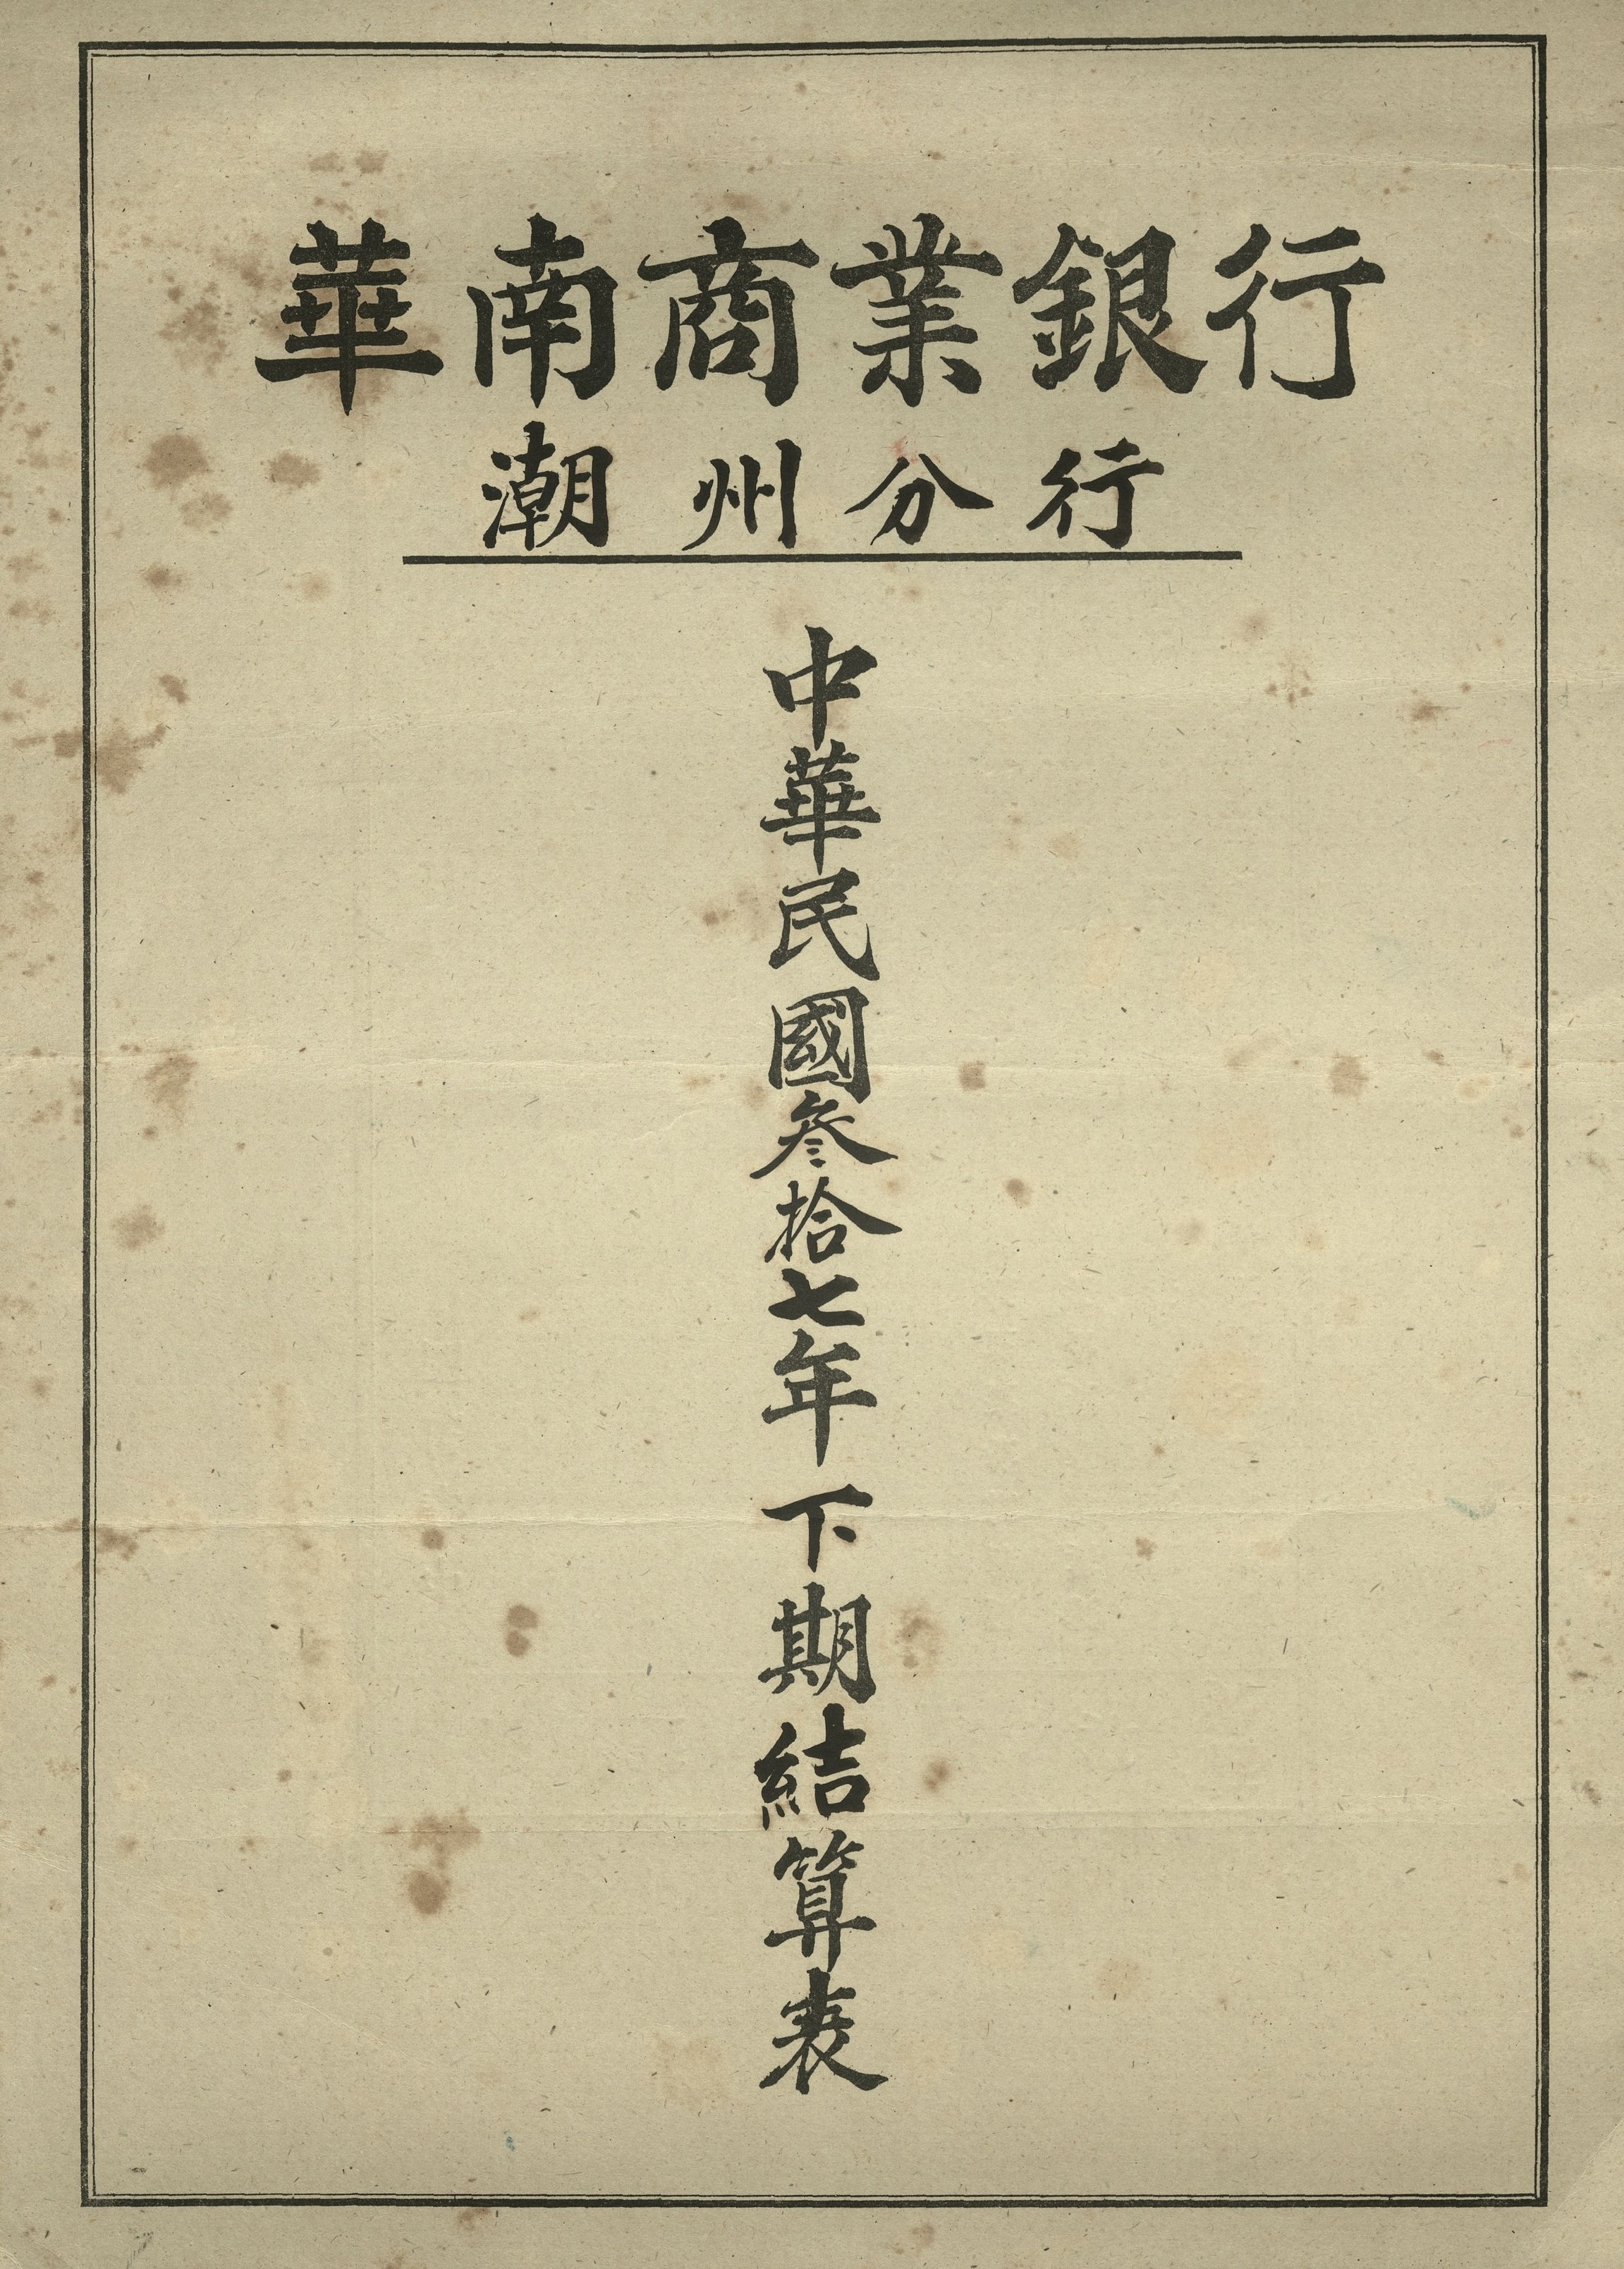 華南商業銀行
潮州分行
中華民國叁拾七年下期結算表